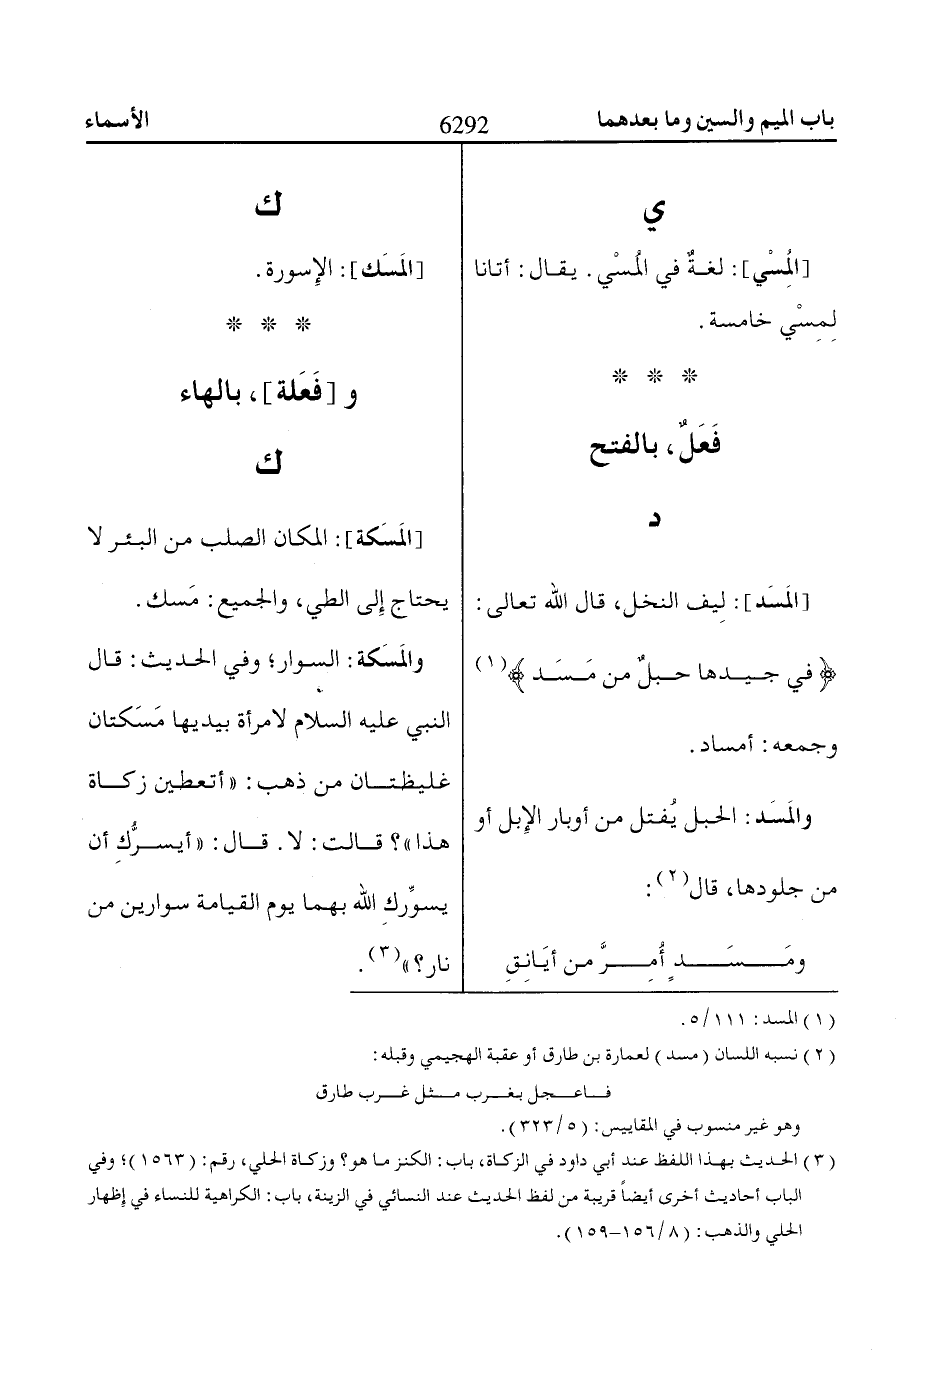 باب الميم والسين وما بعدهما
6292
الأسماء
ي
[المِسْي]: لغةٌ في المُسْي. يقال: أتانا
لِمِسْي خامسة.
* * *
فَعَلٌ، بالفتح
د
[المَسَد]: ليف النخل، قال الله تعالى:
﴿في جِيدها حبلٌ من مَسَد﴾(١)
وجمعه: أمساد.
والمَسَد: الحبل يُفتل من أوبار الإبل أو
من جلودها، قال(٢):
ومَسَدٍ أُمِرَّ من أيَانِقِ
ك
[المَسَك]: الإِسورة.
* * *
و [فَعَلة]، بالهاء
ك
[المَسَكة]: المكان الصلب من البئر لا
يحتاج إلى الطي، والجميع: مَسك.
والمَسَكة: السوار؛ وفي الحديث: قال
النبي عليه السلام لامرأة بيديها مَسَكتان
غليظتان من ذهب: «أتعطين زكاة
هذا»؟ قالت: لا. قال: «أيسرُّكِ أن
يسوِّرك الله بهما يوم القيامة سوارين من
نار؟»(٣).
(١) المسد: ١١١/ ٥.
(٢) نسبه اللسان (مسد) لعمارة بن طارق أو عقبة الهجيمي وقبله:
فاعجل بغرب مثل غرب طارق
وهو غير منسوب في المقاييس: (٥/ ٣٢٣).
(٣) الحديث بهذا اللفظ عند أبي داود في الزكاة، باب: الكنز ما هو؟ وزكاة الحلي، رقم: (١٥٦٣)؛ وفي
الباب أحاديث أخرى أيضاً قريبة من لفظ الحديث عند النسائي في الزينة، باب: الكراهية للنساء في إظهار
الحلي والذهب: (٨/ ١٥٦-١٥٩).